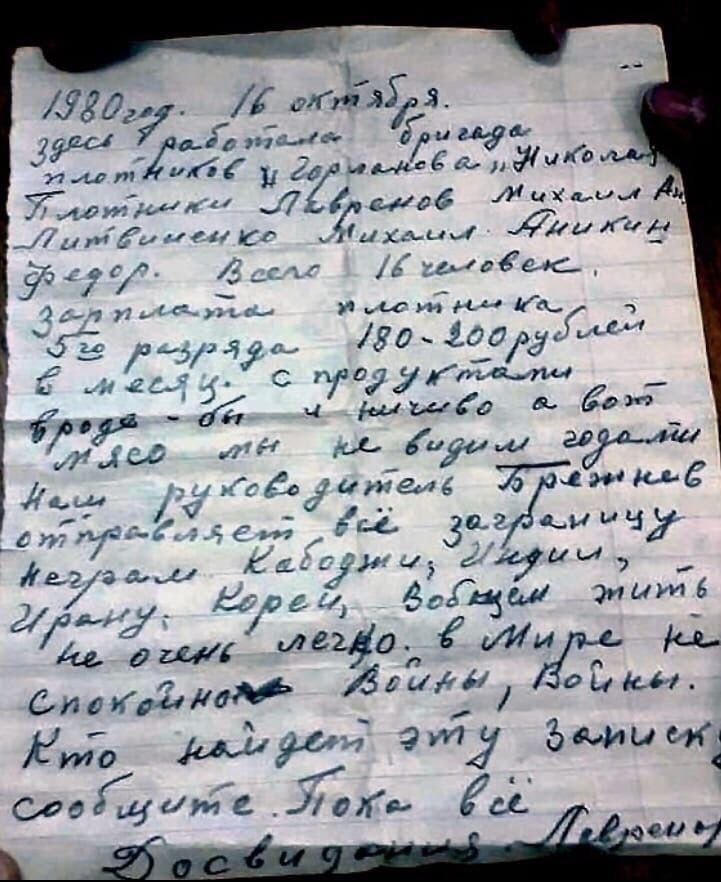 1980 год. 16 октября.
здесь работала бригада
плотников "Горланова" Николая
Плотники Лавренов Михаил Ан
Литвиненко Михаил Аникин
Федор. Всего 16 человек.
зарплата плотника
5го разряда 180-200 рублей
в месяц. с продуктами
вроде-бы и ничиво а вот
мясо мы не видим годами
наш руководитель Брежнев
отправляет всё заграницу
Неграм Кабоджи, Индии,
Ирану, Кореи, Вобщем жить
не очень легко. в Мире не
спокойно Войны, Войны.
Кто найдет эту Записк
сообщите. Пока всё
Досвидания Лавренов